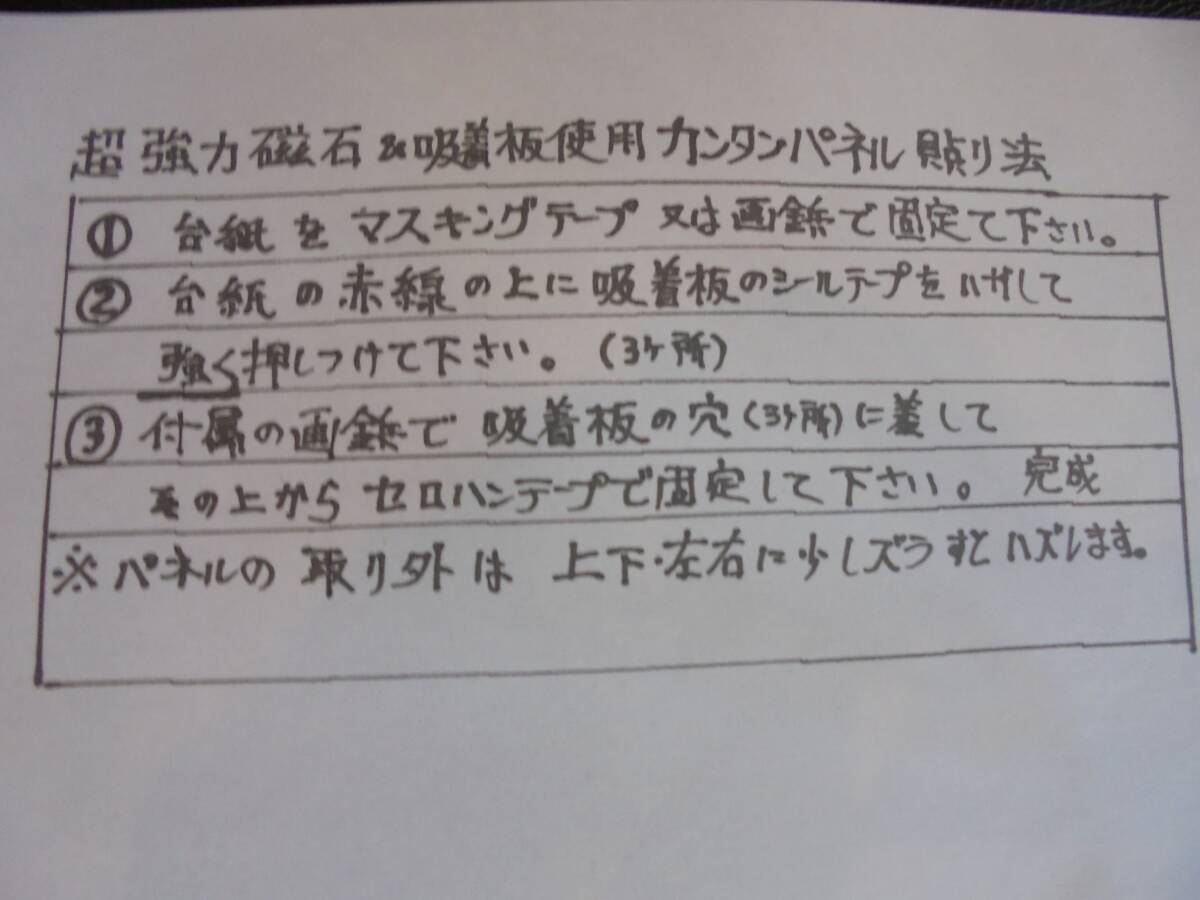 超強力磁石&吸着板使用カンタンパネル貼り法
① 台紙をマスキングテープ又は画鋲で固定て下さい。
② 台紙の赤線の上に吸着板のシールテープをハガして
強く押しつけて下さい。(3ケ所)
③ 付属の画鋲で吸着板の穴(3ケ所)に差して
その上からセロハンテープで固定して下さい。 完成
※パネルの取り外は 上下・左右に少しズラすとハズレます。